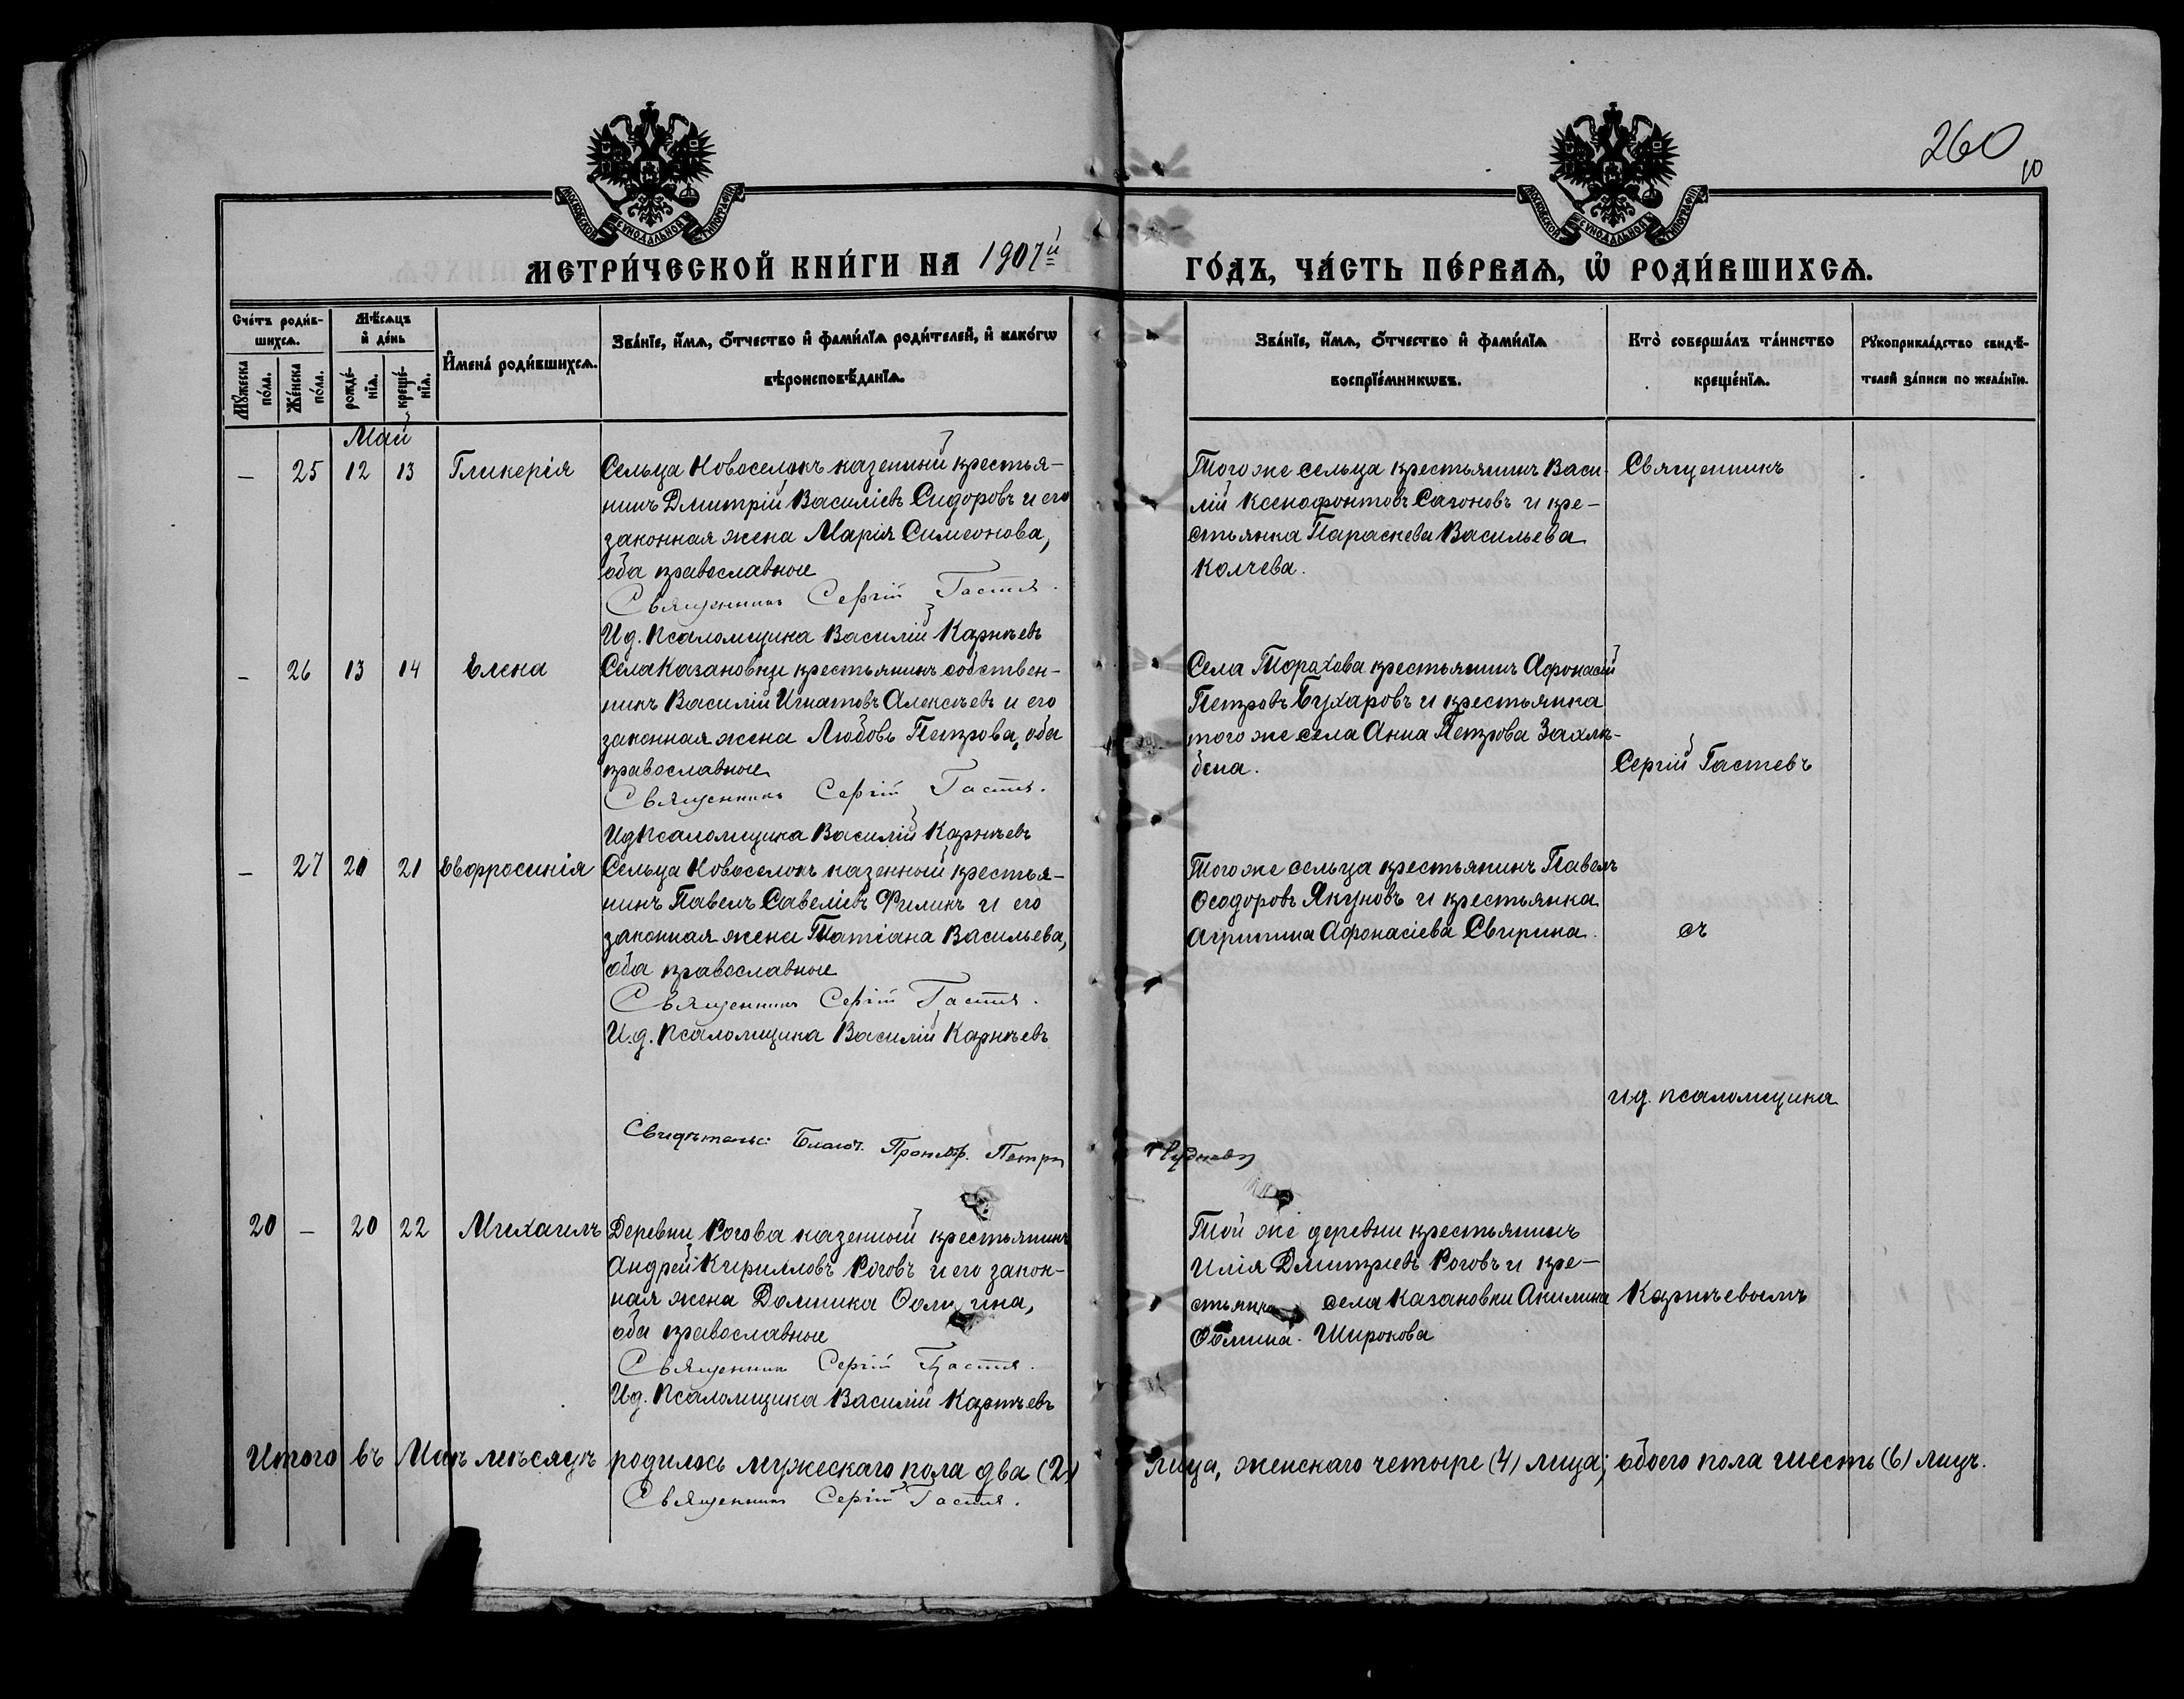 260
10
МОСКОВСКОЙ СѴНОДАЛЬНОЙ ТИПОГРАФІИ
МОСКОВСКОЙ СѴНОДАЛЬНОЙ ТИПОГРАФІИ
МЕТРИ́ЧЕСКОЙ КНИ́ГИ НА 1907й
ГО́ДЪ, ЧА́СТЬ ПЕ́РВАѦ, Ѡ҆ РОДИ́ВШИХСѦ.
Сче́тъ роди́в-
шихсѧ.
Мꙋ́жеска по́ла.
Же́нска по́ла.
Мѣ́сѧцъ
и҆ де́нь
рожде́-
нїѧ.
креще́-
нїѧ.
И҆мена̀ роди́вшихсѧ.
Зва́нїе, и҆́мѧ, ѻ҆́тчество и҆ фами́лїѧ роди́телей, и҆ како́гѡ
вѣроисповѣ́данїѧ.
Зва́нїе, и҆́мѧ, ѻ҆́тчество и҆ фами́лїѧ
воспрїе́мникѡвъ.
Кто̀ соверша́лъ та́инство
креще́нїѧ.
Рꙋкоприкла́дство свидѣ́-
телей за́писи по жела́нїю.
Май
— 25 12 13 Гликерія
Сельца Новоселокъ казенный крестья-
нинъ Дмитрій Василіевъ Сидоровъ и его
законная жена Марія Симеонова,
оба православные
Священникъ Сергій Гастев.
И.д. псаломщика Василій Карнѣевъ
Того же сельца крестьянинъ Васи-
лій Ксенофонтовъ Сазоновъ и кре-
стьянка Параскева Васильева
Колчева.
Священникъ
— 26 13 14 Елена
Села Казановки крестьянинъ собствен-
никъ Василій Игнатовъ Алексѣевъ и его
законная жена Любовь Петрова, оба
православные
Священникъ Сергій Гастев.
И.д. псаломщика Василій Карнѣевъ
Села Торахова крестьянинъ Афонасій
Петровъ Бухаровъ и крестьянка
того же села Анна Петрова Захлѣ-
бена.
Сергій Гастевъ
— 27 20 21 Евфросинія
Сельца Новоселокъ казенный крестья-
нинъ Павелъ Савеліевъ Филинъ и его
законная жена Татіана Васильева,
оба православные
Священникъ Сергій Гастев.
И.д. псаломщика Василій Карнѣевъ
Того же сельца крестьянинъ Павелъ
Ѳеодоровъ Якуновъ и крестьянка
Агрипина Афонасіева Свирина.
съ
и.д. псаломщика
Свидѣтельс: Благоч. Петръ
20 — 20 22 Михаилъ
Деревни Рогова казенный крестьянинъ
Андрей Кирилловъ Роговъ и его закон-
ная жена Домника
оба православные
Священникъ Сергій Гастев.
И.д. псаломщика Василій Карнѣевъ
Той же деревни крестьянинъ
Илія Дмитріевъ Роговъ и кре-
стьянка села Казановки Акилина
Ѳомина Широкова
Карнѣевымъ
Итого въ Маѣ мѣсяцѣ родилось мужескаго пола два (2) лица, женскаго четыре (4) лица; обоего пола шесть (6) лицъ.
Священникъ Сергій Гастев.